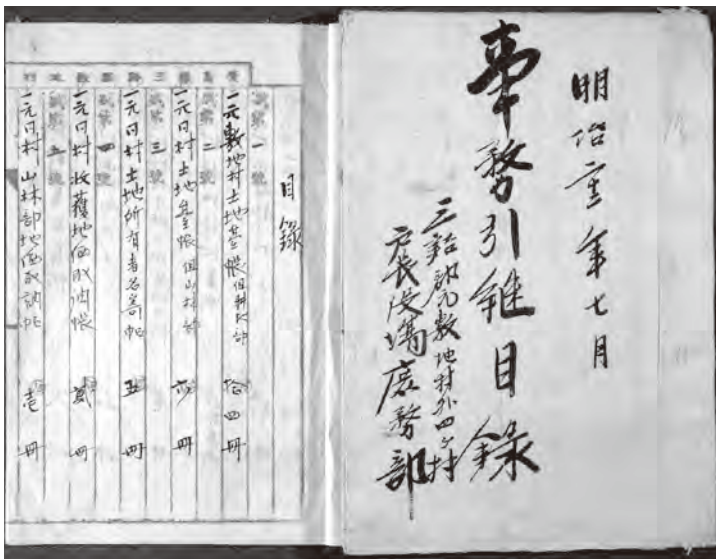 明治年七月
事務引継目録
三谿郡元敷地村外四ヶ村
戸長役場庶務部
目録
第一號
一元敷地村土地基帳但耕地部 拾四冊
第二號
一元同村土地基帳但山林部 六冊
第三號
一元同村土地所有者名寄帖 五冊
第四號
一元同村収穫地価取調帳 貳冊
第五號
一元同村山林部地価取調帖 壱冊